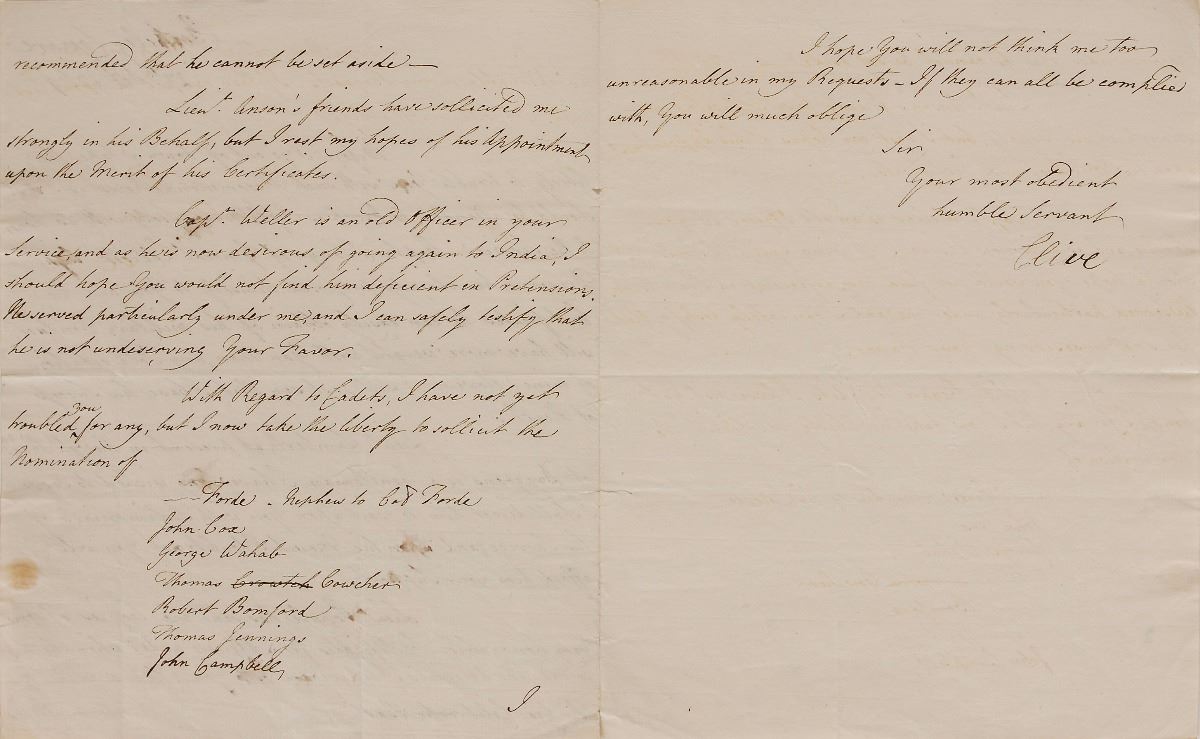 recommended that he cannot be set aside —
Lieut. Anson's friends have sollicited me
strongly in his Behalf, but I rest my hopes of his Appointment
upon the Merit of his Certificates.
Capt. Weller is an old Officer in your
Service, and as he is now desirous of going again to India, I
should hope You would not find him deficient in Pretensions.
He served particularly under me, and I can safely testify that
he is not undeserving Your Favor.
With Regard to Cadets, I have not yet
troubled you for any, but I now take the liberty to sollicit the
Nomination of
— Forde - Nephew to Col Forde
John Cox
George Wahab
Thomas Crowtch Cowcher
Robert Bomford
Thomas Jennings
John Campbell,
I
I hope You will not think me too
unreasonable in my Requests - If they can all be complied
with, You will much oblige
Sir
Your most obedient
humble Servant
Clive